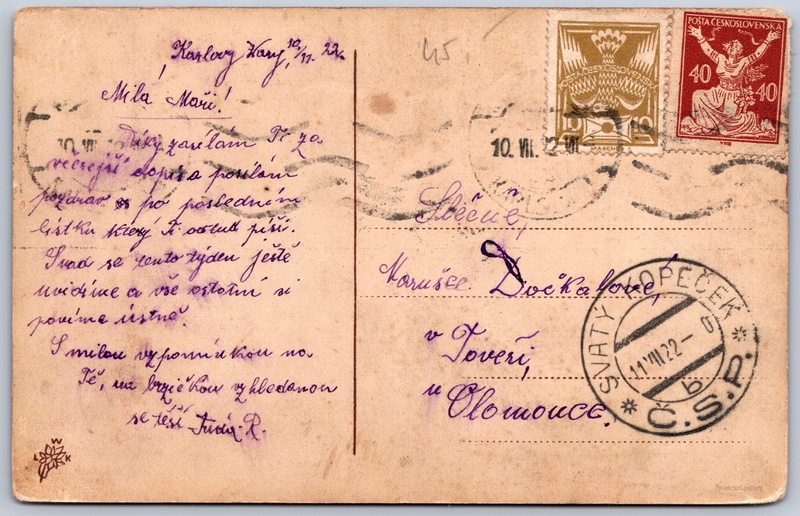 Karlovy Vary, 10/VII. 22.
Milá Maři!
Díky zasílám Ti za
včerejší dopis a posílám
pozdrav po posledním
lístku který Ti odtud píši.
Snad se tento týden ještě
uvidíme a vše ostatní si
povíme ústně.
S milou vzpomínkou na
Tě, na brzičkou vzhledanou
se těší R.
45.
POŠTA ČESKOSLOVENSKÁ
10 10
POŠTA ČESKOSLOVENSKÁ
40 40
10. VII. 22
10. VII. 22 VII
Slečně,
Marušce Dočkalové,
v Toveři,
u Olomouce.
SVATÝ KOPEČEK
11 VII 22
b
Č.S.P.
W
L K